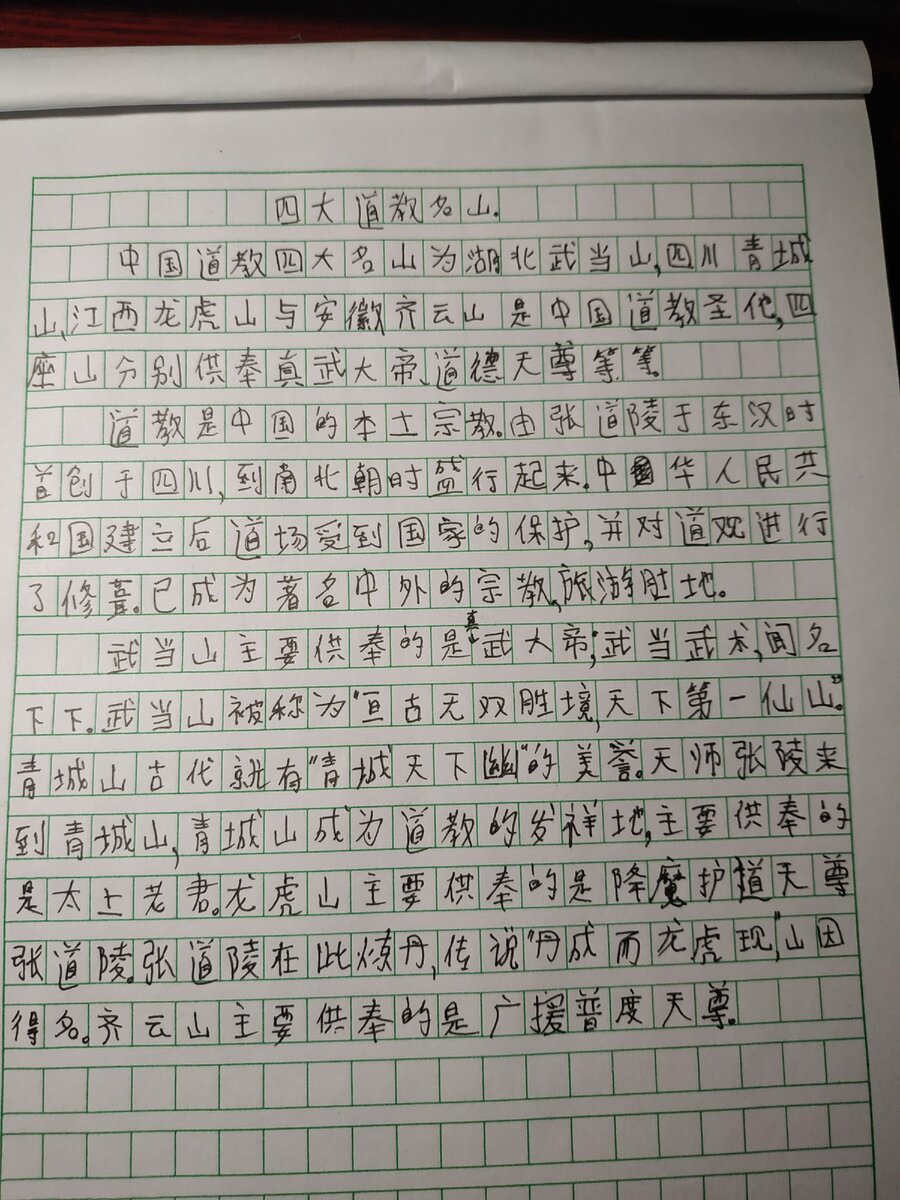 四大道教名山.
中国道教四大名山为湖北武当山,四川青城
山,江西龙虎山与安徽齐云山是中国道教圣地,四
座山分别供奉真武大帝、道德天尊等等.
道教是中国的本土宗教.由张道陵于东汉时
首创于四川,到南北朝时盛行起来.中国华人民共
和国建立后道场受到国家的保护,并对道观进行
了修葺.已成为著名中外的宗教,旅游胜地.
武当山主要供奉的是真武大帝;武当武术,闻名
下下.武当山被称为"亘古无双胜境,天下第一仙山."
青城山古代就有"青城天下幽"的美誉.天师张陵来
到青城山,青城山成为道教的发祥地,主要供奉的
是太上老君.龙虎山主要供奉的是降魔护道天尊
张道陵.张道陵在此炼丹,传说"丹成而龙虎现,"山因
得名.齐云山主要供奉的是广援普度天尊.